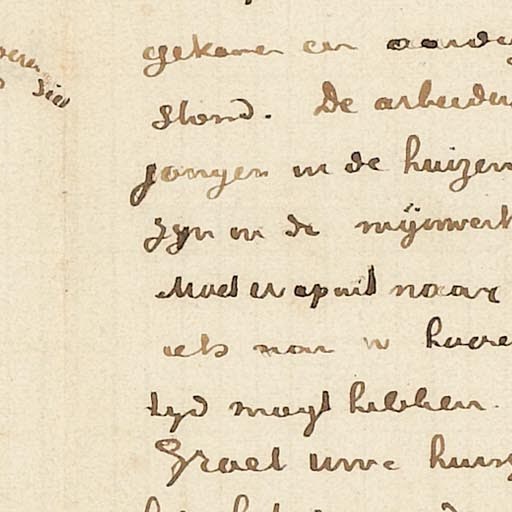 gekomen en aardig
stond. De arbeiders
jongen in de huizen
zyn in de mijnwerk
Moet er op uit naar
iets van u hoore
tyd mogt hebben.
Groet uwe huisg